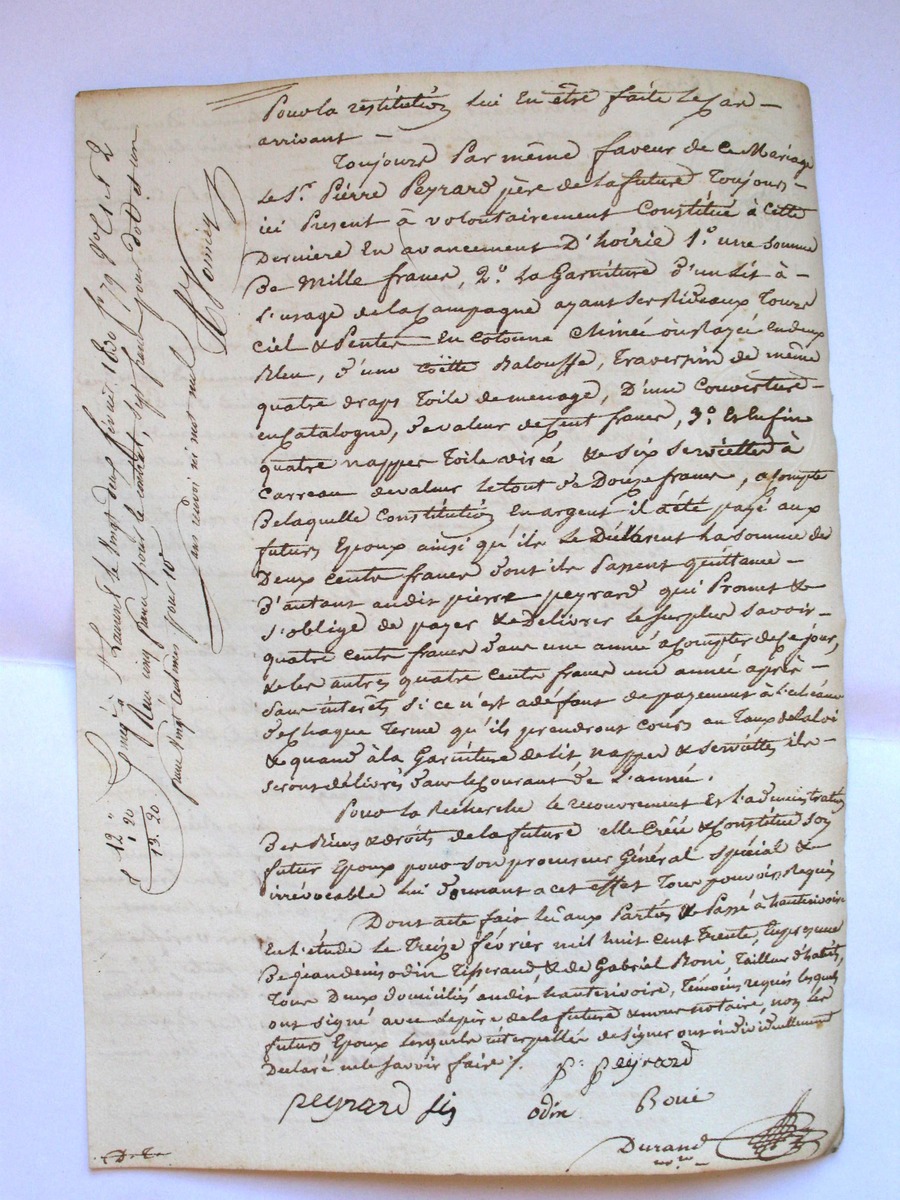 Pour la restitution lui En être faite le Cas
arrivant
Toujours Par même faveur de Ce Mariage
Le Sr. Pierre Peyrard père de la future Toujours
ici Present à volontairement Constitué à Cette
Derniere En avancement D'hoirie 1º. une somme
De Mille francs, 2º. La Garniture d'un Lit à
L'usage de la Campagne ayant Ses Rideaux Tours
Ciel & Pentes En Cotonne Chinée ou Rayée En deux
Bleu, d'une Coëtte Balouffe, Traversin de même
quatre draps Toile de menage, D'une Couverture
en Catalogne, de valeur de Cent francs, 3º. Et Enfin
quatre nappes Toile & six Serviettes à
Carreau de valeur le tout de Douze francs, a Compte
De laquelle Constitution En argent il a été payé aux
futurs Epoux ainsi qu'ils Le Déclarent La Somme de
Deux Cents francs dont ils Passent quittance
D'autant audit pierre peyrard qui Promet &
S'oblige de payer & de Délivrer le Surplus Savoir
quatre Cents francs dans une année a Compter de Ce jour,
& les autres quatre Cents francs une année après
Sans interêts Si Ce n'est a défaut de payement à L'echéance
de Chaque Terme qu'ils prendront Cours au Taux de La loi
& quand à la Garniture de lit, nappes & Serviettes ils
Seront délivrés dans le Courant de L'année.
Pour la Recherche le recouvrement Et L'administration
Des Biens & droits de la future elle Créé & Constitue Son
futur Epoux pour Son procureur Général Spécial &
irrévocable Lui donnant a cet effet Tous pouvoirs Requis
Dont acte fait Lu aux Parties & Passé à hauterivoire
En L'étude le Treize février mil huit Cent Trente, En presence
De jean denis odin Tisserand & de Gabriel Boni Tailleur d'habits,
Tous Deux domiciliés audit hauterivoire, Témoins requis lesquels
ont signé avec le père de la future & nous notaire, non les
futurs Epoux lesquels interpellés de Signer ont individuellement
Declaré ne le Savoir faire /.
P. peyrard
peyrard fis odin Boni
Durand
nore
Enregistré à St Laurent le Vingt deux février 1830 fo 79 Vo. Cs 1 et 2
Reçu Cinq francs pour le contrat, Sept francs pour dot et un
franc Vingt centimes pour 10e
sans renvoi ni mot nul
12 "
1. 20
13. 20